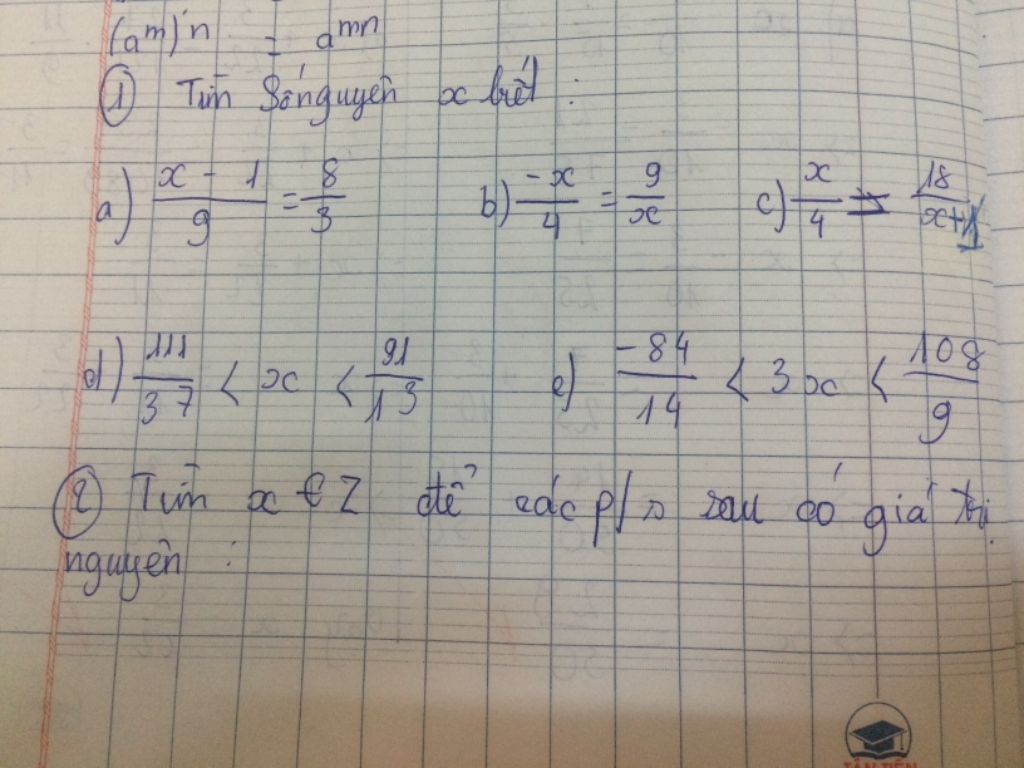 (a^m)^n = a^mn
① Tìm số nguyên x biết :
a) (x - 1)/9 = 8/3 b) -x/4 = 9/x c) x/4 = 18/(x+1)
d) 111/37 < x < 91/13 e) -84/14 < 3x < 108/9
② Tìm x € Z để các p/s sau có giá trị
nguyên :
TÂN TIẾN